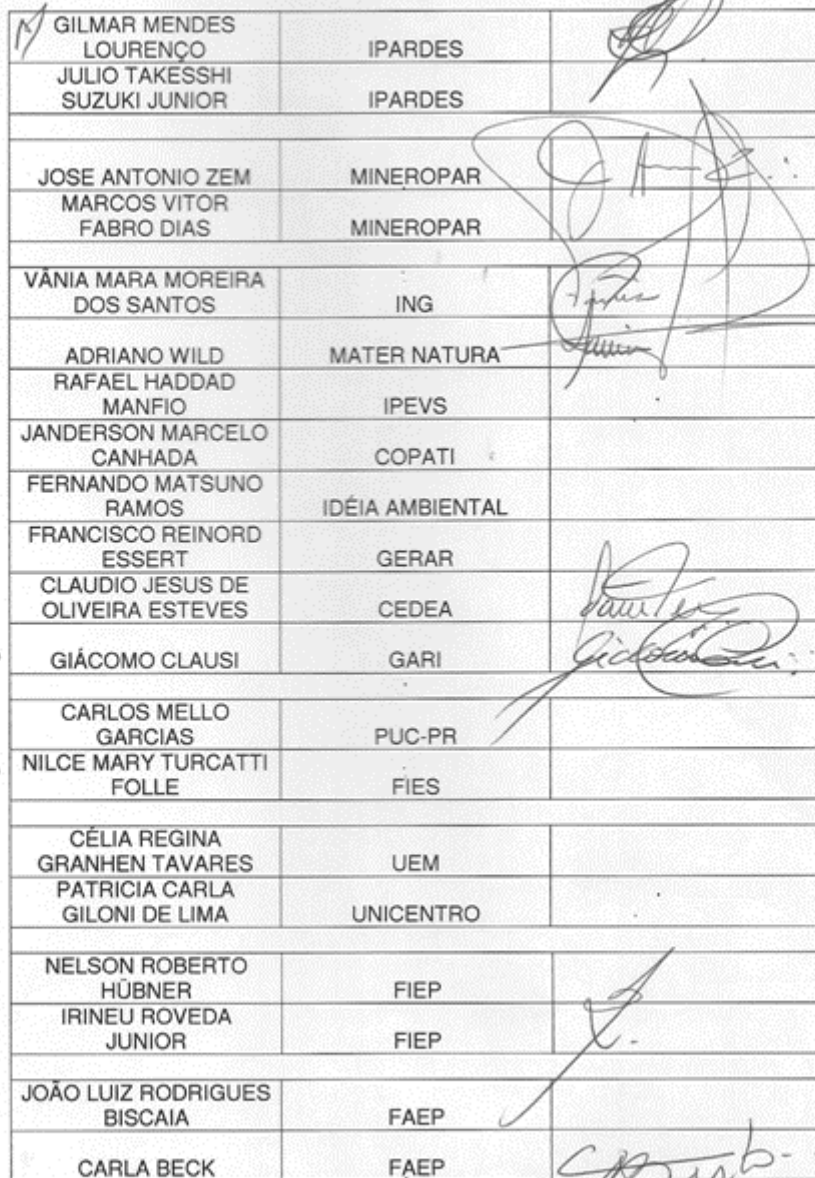 GILMAR MENDES
LOURENÇO IPARDES
JULIO TAKESSHI
SUZUKI JUNIOR IPARDES
JOSE ANTONIO ZEM MINEROPAR
MARCOS VITOR
FABRO DIAS MINEROPAR
VÂNIA MARA MOREIRA
DOS SANTOS ING
ADRIANO WILD MATER NATURA
RAFAEL HADDAD
MANFIO IPEVS
JANDERSON MARCELO
CANHADA COPATI
FERNANDO MATSUNO
RAMOS IDÉIA AMBIENTAL
FRANCISCO REINORD
ESSERT GERAR
CLAUDIO JESUS DE
OLIVEIRA ESTEVES CEDEA
GIÁCOMO CLAUSI GARI
CARLOS MELLO
GARCIAS PUC-PR
NILCE MARY TURCATTI
FOLLE FIES
CÉLIA REGINA
GRANHEN TAVARES UEM
PATRICIA CARLA
GILONI DE LIMA UNICENTRO
NELSON ROBERTO
HÜBNER FIEP
IRINEU ROVEDA
JUNIOR FIEP
JOÃO LUIZ RODRIGUES
BISCAIA FAEP
CARLA BECK FAEP